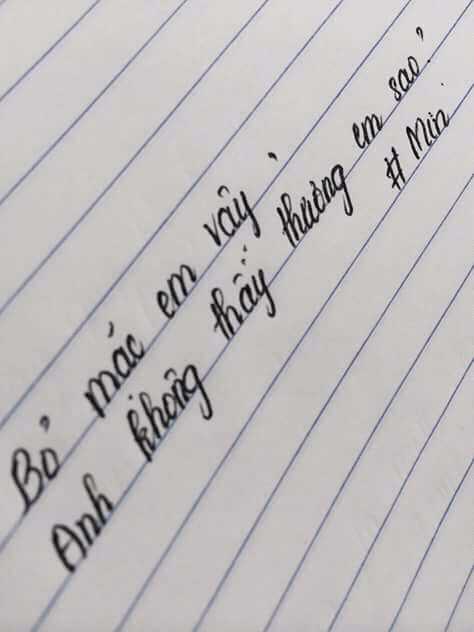 Bỏ mác em vậy,
Anh không thấy thương em sao?
# Min